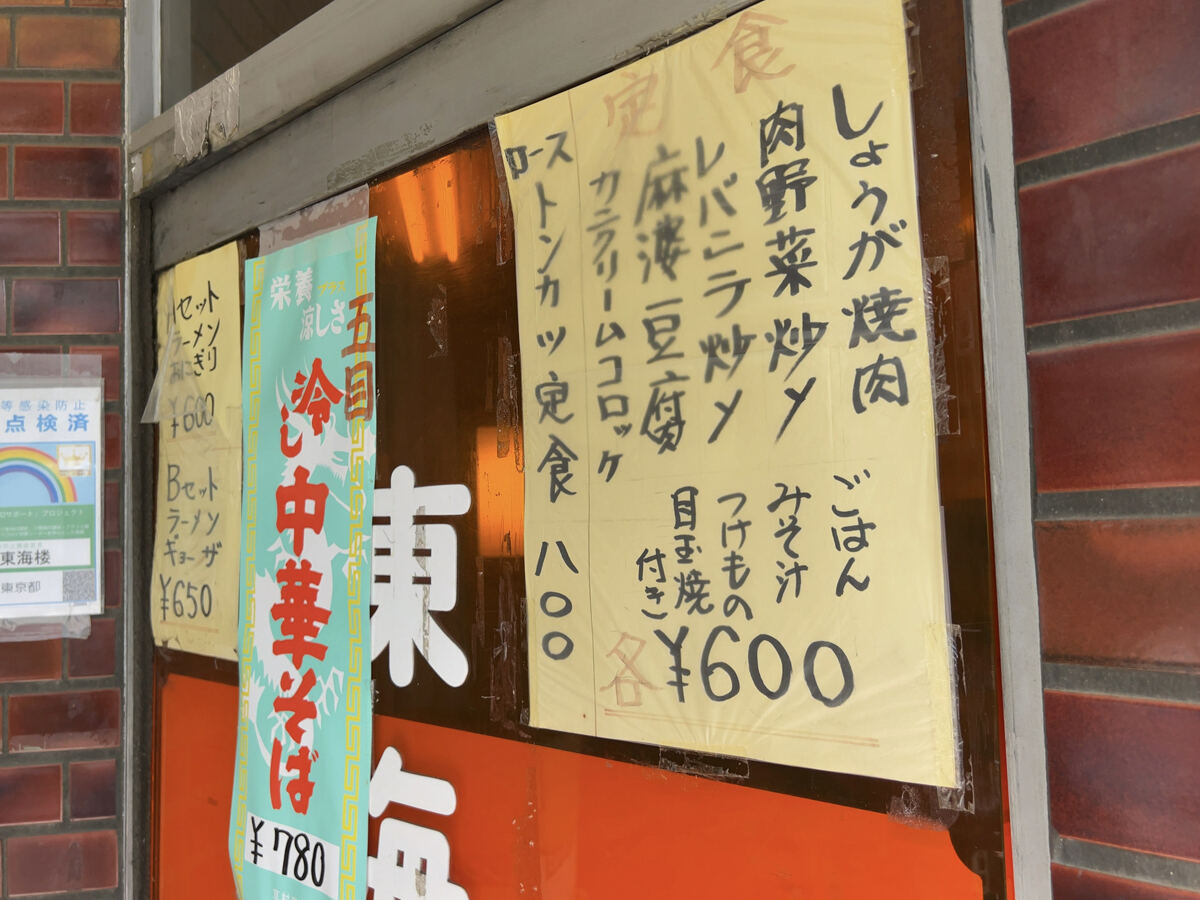 定食
しょうが焼肉
肉野菜炒メ
レバニラ炒メ
麻婆豆腐
カニクリームコロッケ
ごはん
みそ汁
つけもの
目玉焼
付き
各
¥600
ローストンカツ定食 八〇〇
東海
栄養
涼しさ
五目
冷し中華そば
¥780
Aセット
ラーメン
おにぎり
¥600
Bセット
ラーメン
ギョーザ
¥650
等感染防止
点検済
東海楼
東京都